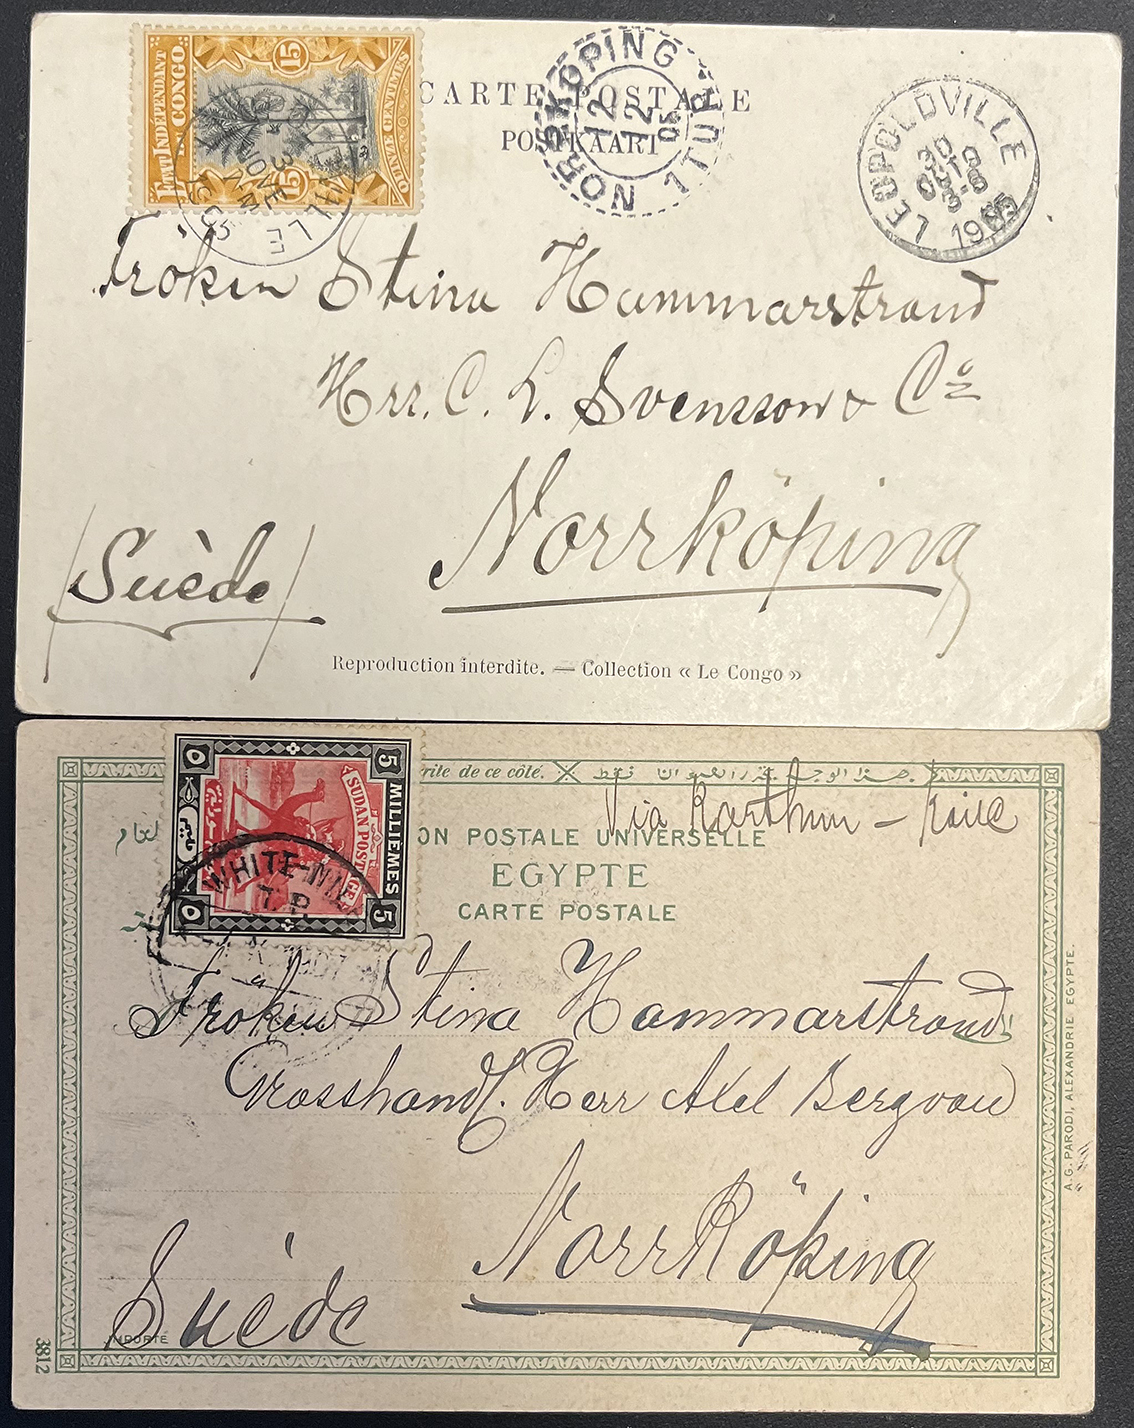 ETAT INDÉPENDANT
DU CONGO.
15
15
QUINZE CENTIMES
CARTE POSTALE
POSTKAART
NORRKÖPING
12 12 05
1 TUR
LEOPOLDVILLE
1905
VILLE
3
NOVE
1905
Fröken Stina Hammarstrand
Hrr. C. L. Svensson & Co
Norrköping
(Suède)
Reproduction interdite. — Collection « Le Congo »
5 MILLIEMES 5
SUDAN POSTAGE
٥
٥
WHITE-NILE
1907
rite de ce côté.
Via Karthum – Kaire
ON POSTALE UNIVERSELLE
EGYPTE
CARTE POSTALE
Fröken Stina Hammarstrand
Grosshandl. Herr Axel Bergvall
Norrköping
Suède
IMPORTÉ
3812
A. G. PARODI, ALEXANDRIE EGYPTE.